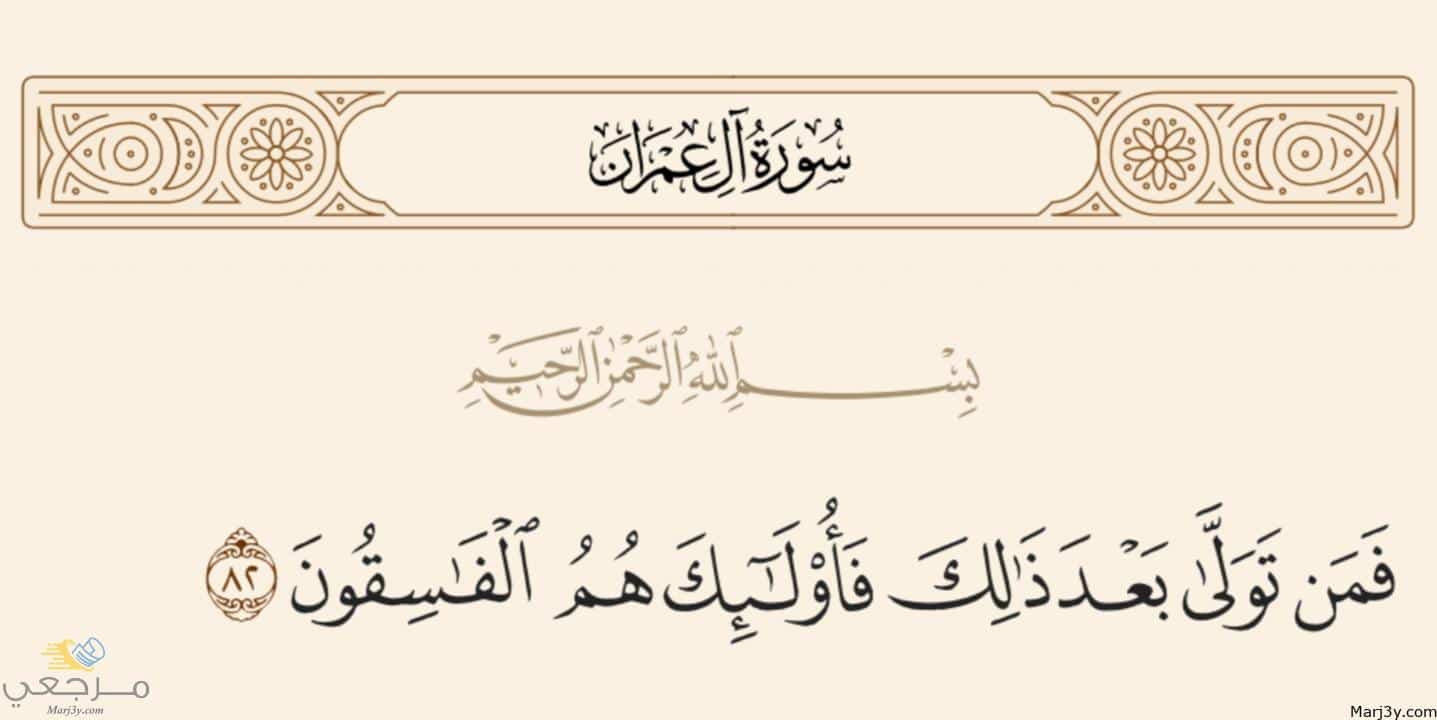 سُورَةُ آلِ عِمْرَانَ
بِسْمِ ٱللَّهِ ٱلرَّحْمَٰنِ ٱلرَّحِيمِ
فَمَن تَوَلَّىٰ بَعْدَ ذَٰلِكَ فَأُو۟لَـٰٓئِكَ هُمُ ٱلْفَـٰسِقُونَ ٨٢
مرجعي
Marj3y.com
Marj3y.com